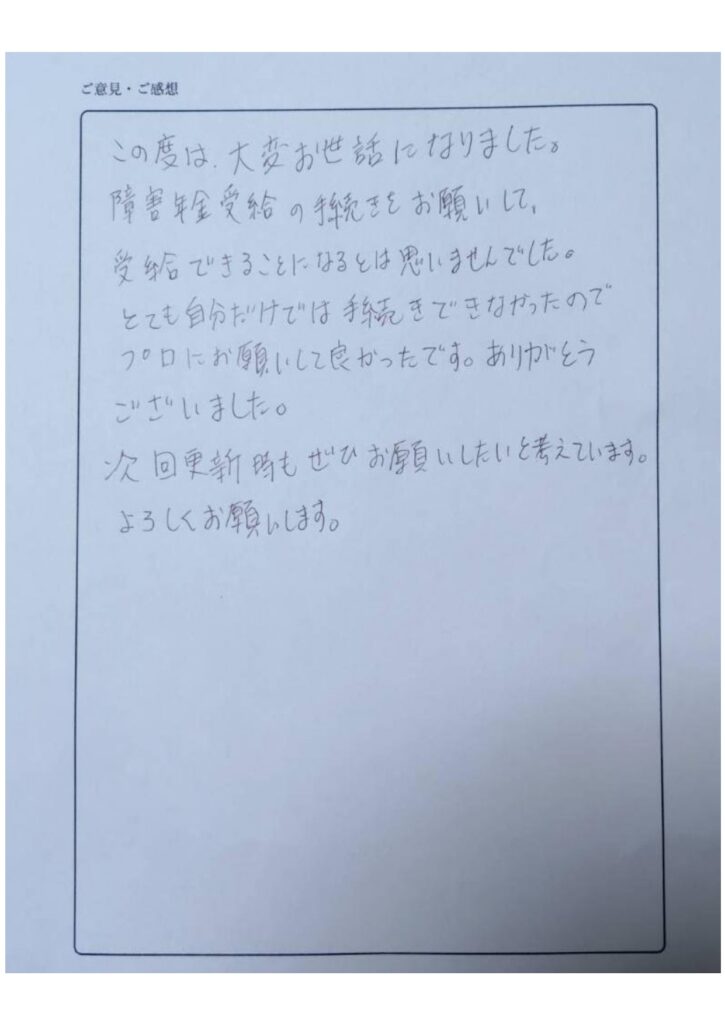 ご意見・ご感想
この度は、大変お世話になりました。
障害年金受給の手続きをお願いして、
受給できることになるとは思いませんでした。
とても自分だけでは手続きできなかったので
プロにお願いして良かったです。ありがとう
ございました。
次回更新時もぜひお願いしたいと考えています。
よろしくお願いします。